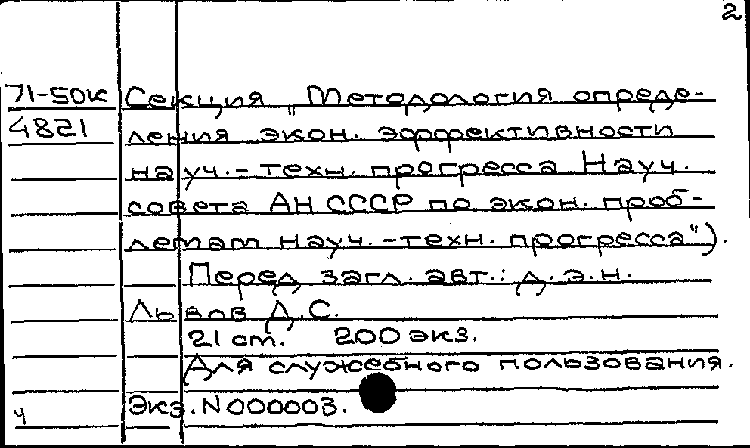 2
71-50к Секция „Методология опреде-
4821 ления экон. эффективности
науч.-техн. прогресса Науч.
совета АН СССР по экон. проб-
лемам науч.-техн. прогресса").
Перед загл. авт.: д.э.н.
Львов Д.С.
21 ст. 200 экз.
Для служебного пользования.
ч Экз. N000003.